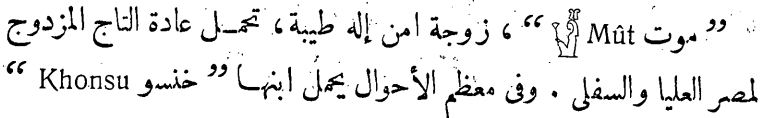 ”موت Mût“ ، زوجة امن إله طيبة ، تحمل عادة التاج المزدوج
لمصر العليا والسفلى . وفى معظم الأحوال يحمل ابنها ”خنسو Khonsu“